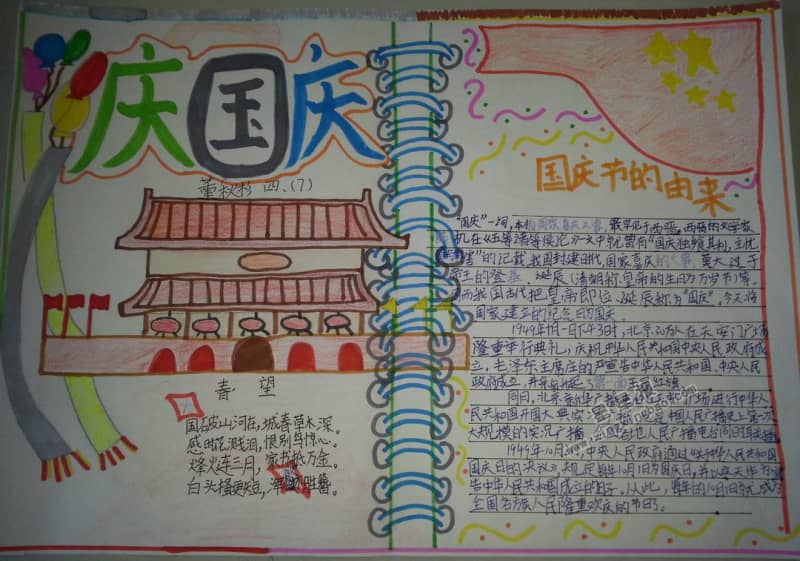 庆国庆
董秋杉 四.(7)
春 望
国破山河在,城春草木深。
感时花溅泪,恨别鸟惊心。
烽火连三月,家书抵万金。
白头搔更短,浑欲胜簪。
国庆节的由来
"国庆"一词,本指国家喜庆之事,最早见于西晋。西晋的文学家
机在《五等诸侯论》一文中就曾有"国庆独飨其利,主忧
害"的记载、我国封建时代、国家喜庆的大事,莫大过于
王的登基、诞辰(清朝称皇帝的生日为万岁节)等。
而我国古代把皇帝即位、诞辰称为"国庆"。今天称
国家建立的纪念日为国庆。
1949年10月1日下午3时,北京30万人在天安门广场
隆重举行典礼,庆祝中华人民共和国中央人民政府成
立。毛泽东主席庄严宣告中华人民共和国、中央人民
政府成立,并亲自升起了第一面五星红旗。
同日,北京新华广播电台在天安门广场进行中华人
民共和国开国大典实况广播,是中国人民广播史上第一次
大规模的实况广播,全国各地人民广播电台同时联播
1949年10月2日,中央人民政府通过《中华人民共和国
国庆日的决议》,规定每年10月1日为国庆日,并以这一天作为宣
告中华人民共和国成立的日子。从此,每年的10月1日就成为
全国各族人民隆重欢庆的节日了。